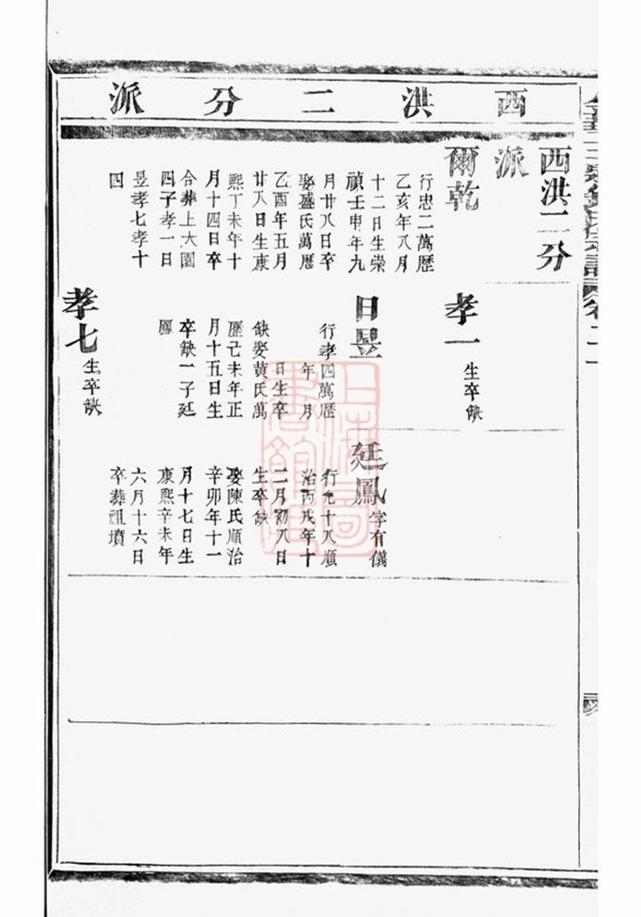 西洪二分派
西洪二分
派
爾乾
行忠二萬歷
乙亥年八月
十二日生崇
禎壬申年九
月廿八日卒
娶盛氏萬歷
乙酉年五月
廿八日生康
熙丁未年十
月十四日卒
合葬上大園
四子孝一日
昱孝七孝十
四
孝一生卒缺
日昱
行孝四萬歷
年月
日生卒
缺娶黄氏萬
歷己未年正
月十五日生
卒缺一子廷
鳳
孝七生卒缺
廷鳳字有儀
行九十八順
治丙戌年十
二月初八日
生卒缺
娶陳氏順治
辛卯年十一
月十七日生
康熙辛未年
六月十六日
卒葬祖墳